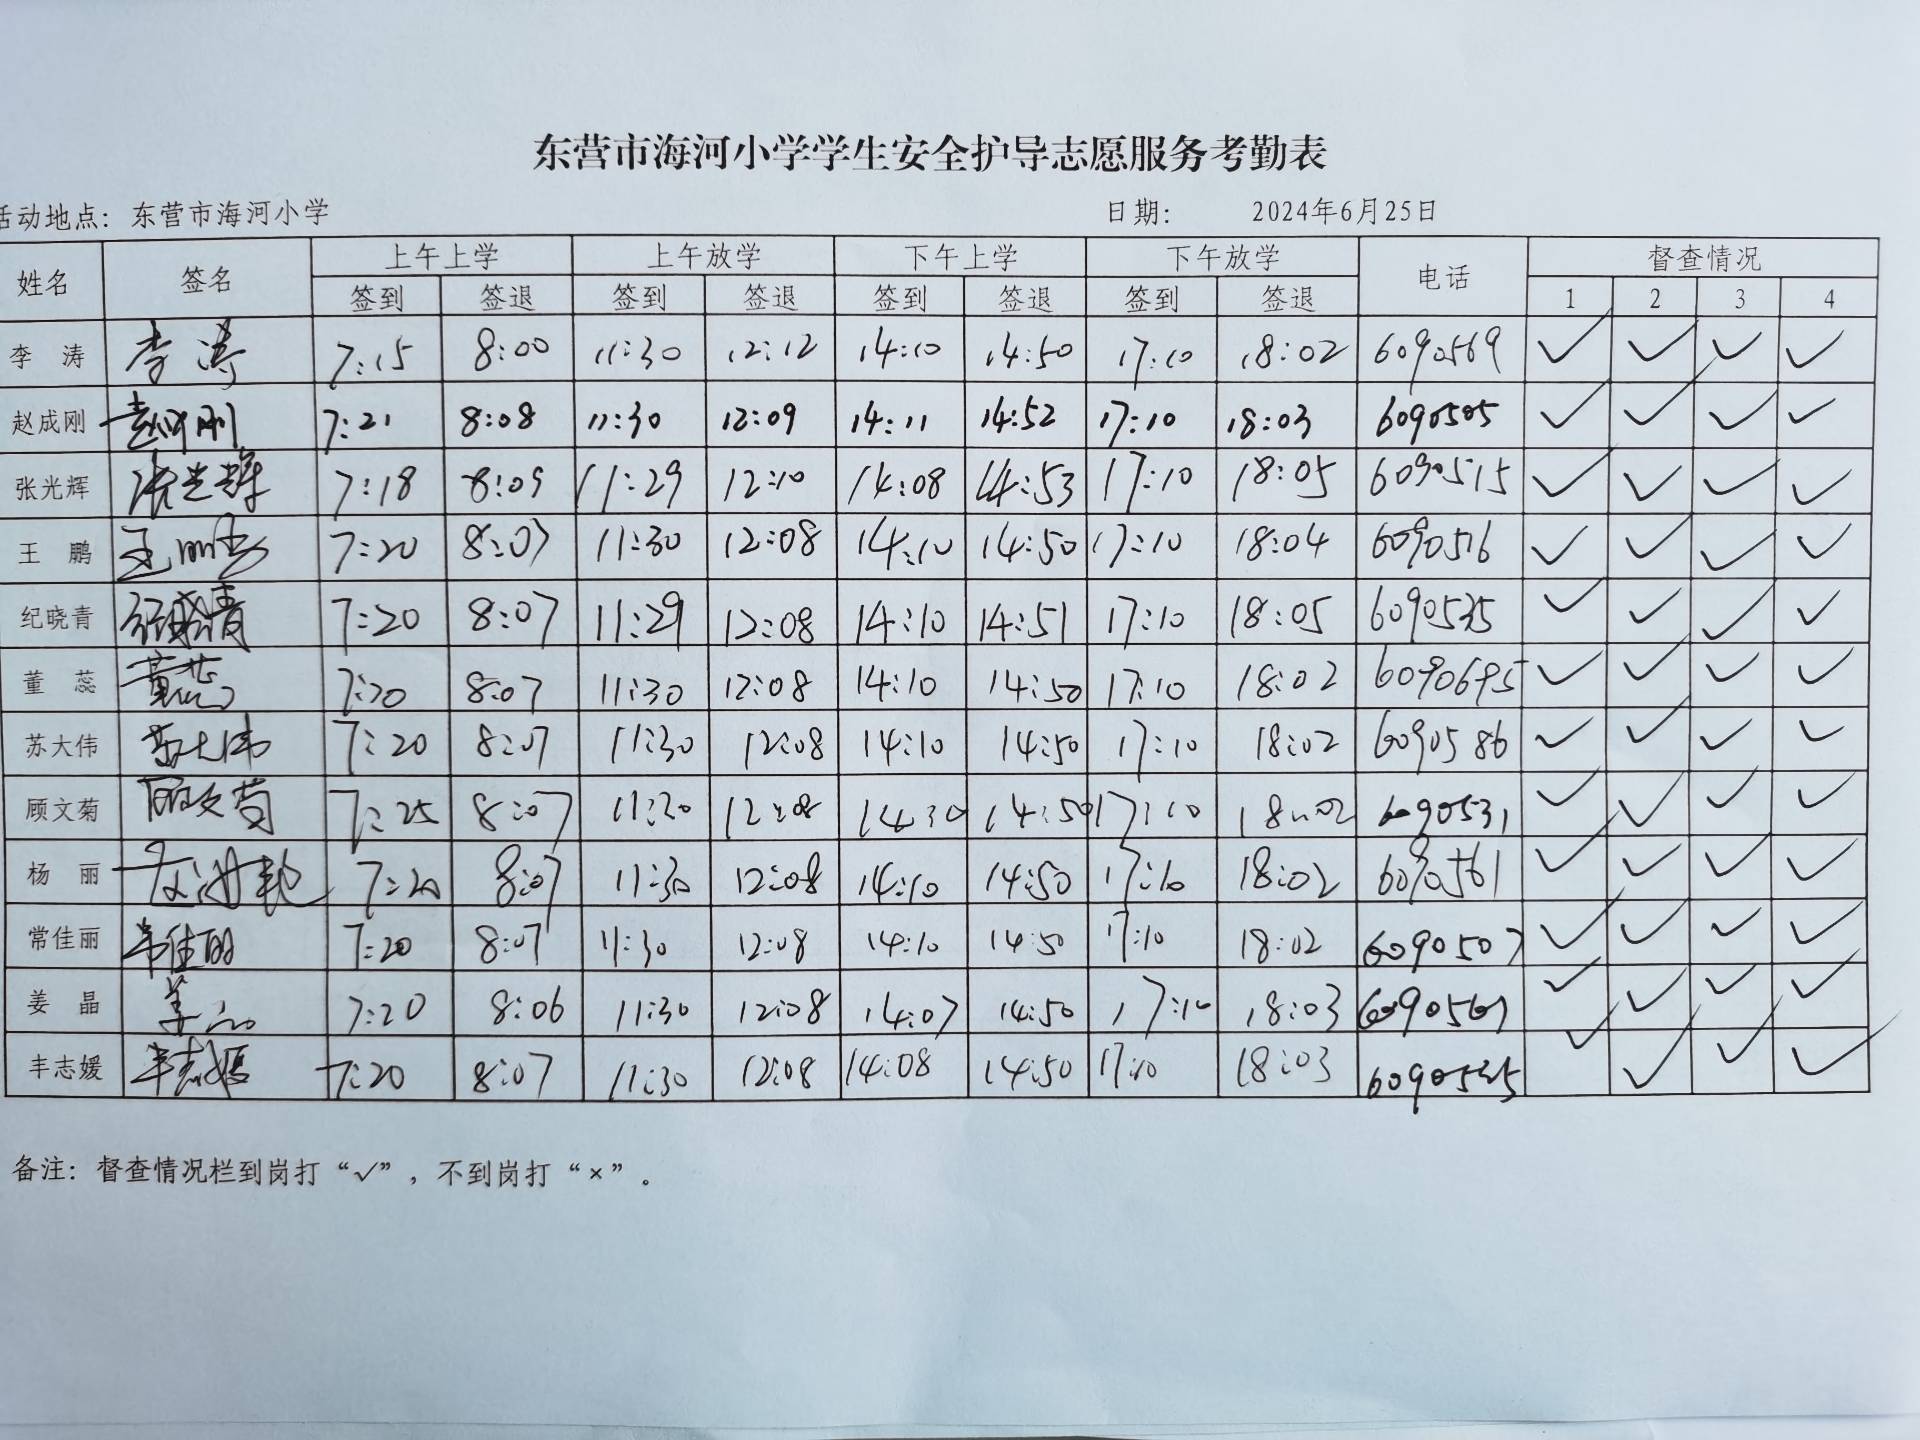 东营市海河小学学生安全护导志愿服务考勤表
活动地点：东营市海河小学 日期： 2024年6月25日
姓名 签名 上午上学 上午放学 下午上学 下午放学 电话 督查情况
签到 签退 签到 签退 签到 签退 签到 签退 1 2 3 4
李 涛 李涛 7:15 8:00 11:30 12:12 14:10 14:50 17:10 18:02 6090569 ✓ ✓ ✓ ✓
赵成刚 赵成刚 7:21 8:08 11:30 12:09 14:11 14:52 17:10 18:03 6090505 ✓ ✓ ✓ ✓
张光辉 张光辉 7:18 8:09 11:29 12:10 14:08 14:53 17:10 18:05 6090515 ✓ ✓ ✓ ✓
王 鹏 王鹏 7:20 8:07 11:30 12:08 14:10 14:50 17:10 18:04 6090516 ✓ ✓ ✓ ✓
纪晓青 纪晓青 7:20 8:07 11:29 12:08 14:10 14:51 17:10 18:05 6090535 ✓ ✓ ✓ ✓
董 蕊 董蕊 7:20 8:07 11:30 12:08 14:10 14:50 17:10 18:02 6090695 ✓ ✓ ✓ ✓
苏大伟 苏大伟 7:20 8:07 11:30 12:08 14:10 14:50 17:10 18:02 6090586 ✓ ✓ ✓ ✓
顾文菊 顾文菊 7:25 8:07 11:20 12:08 14:30 14:50 17:10 18:02 6090531 ✓ ✓ ✓ ✓
杨 丽 7:20 8:07 11:30 12:08 14:10 14:50 17:10 18:02 6090561 ✓ ✓ ✓ ✓
常佳丽 常佳丽 7:20 8:07 11:30 12:08 14:10 14:50 17:10 18:02 6090507 ✓ ✓ ✓ ✓
姜 晶 姜晶 7:20 8:06 11:30 12:08 14:07 14:50 17:10 18:03 ✓ ✓ ✓ ✓
丰志媛 丰志媛 7:20 8:07 11:30 12:08 14:08 14:50 17:10 18:03 ✓ ✓ ✓ ✓
备注：督查情况栏到岗打“√”，不到岗打“×”。